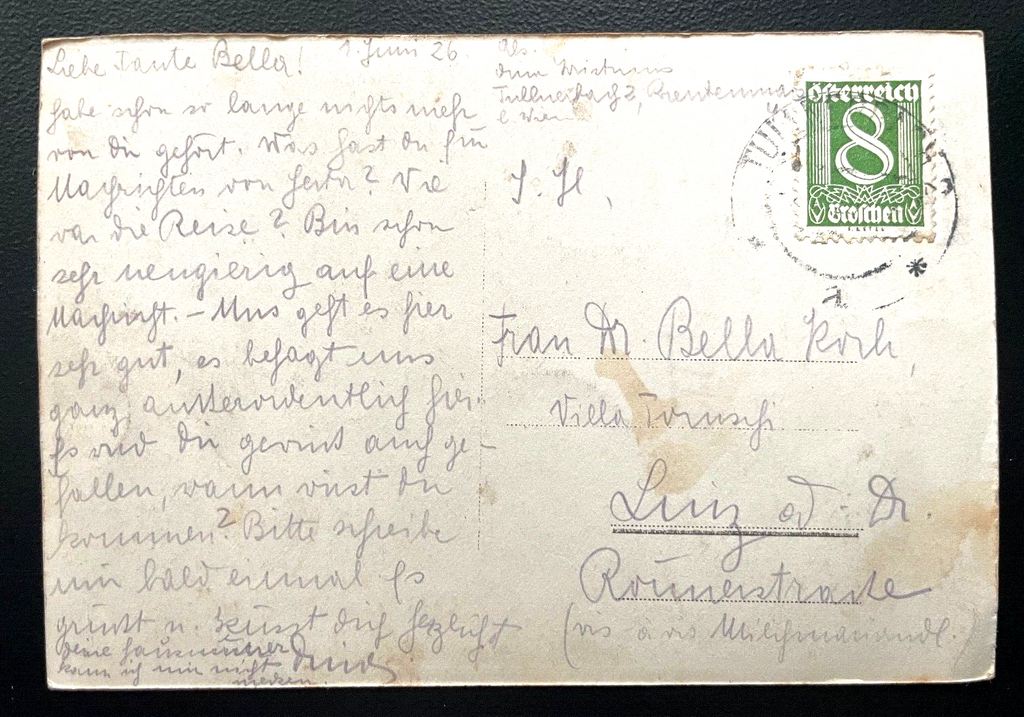 Liebe Tante Bella! 1. Juni 26.
habe schon so lange nichts mehr
von dir gehört. Was hast du für
Nachrichten von Wie
war die Reise? Bin schon
sehr neugierig auf eine
Nachricht. – Uns geht es hier
sehr gut, es behagt uns
ganz außerordentlich hier.
Es wird dir gewiß auch ge-
fallen, wann wirst du
kommen? Bitte schreibe
mir bald einmal Es
grüßt u. küsst dich herzlichst
deine Hausnummer
kann ich mir nicht
merken.
Abs.
Tullnerbach 2,
b. Wien
Österreich
8
Groschen
J. H.,
Frau Dr. Bella Koch,
Villa
Linz a/d. D.
Römerstraße
(vis à vis